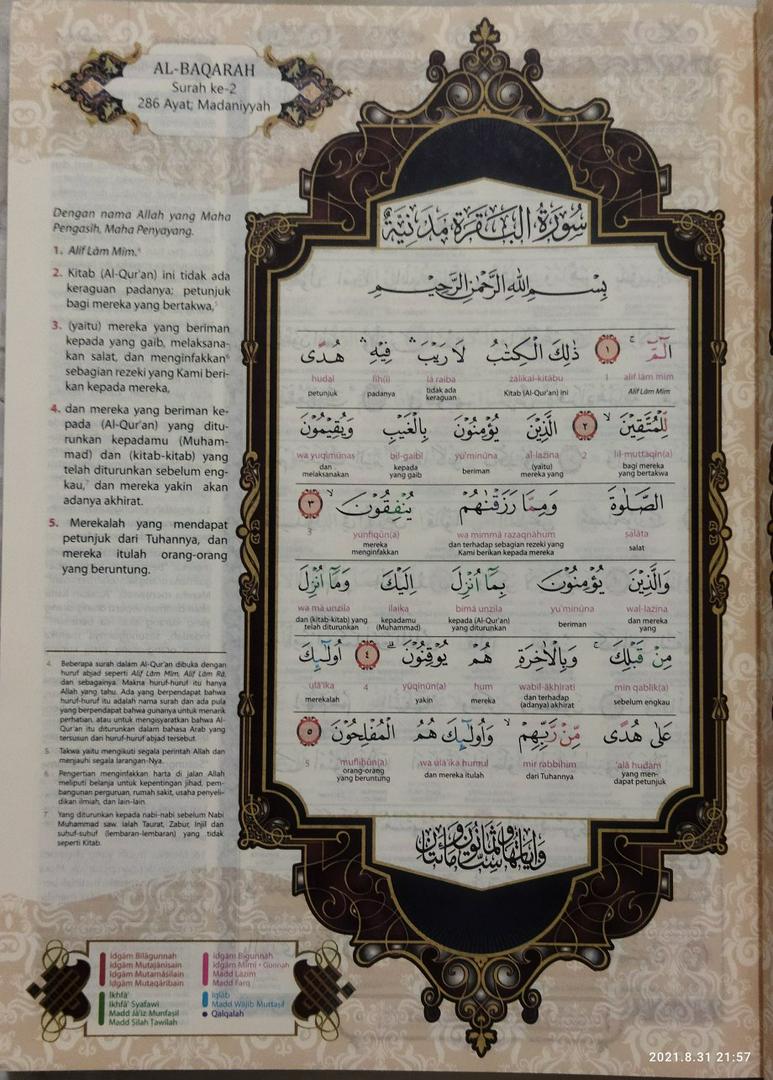 AL-BAQARAH
Surah ke-2
286 Ayat; Madaniyyah
Dengan nama Allah yang Maha
Pengasih, Maha Penyayang.
1. Alif Lām Mīm.⁴
2. Kitab (Al-Qur'an) ini tidak ada
keraguan padanya; petunjuk
bagi mereka yang bertakwa,⁵
3. (yaitu) mereka yang beriman
kepada yang gaib, melaksana-
kan salat, dan menginfakkan⁶
sebagian rezeki yang Kami beri-
kan kepada mereka,
4. dan mereka yang beriman ke-
pada (Al-Qur'an) yang ditu-
runkan kepadamu (Muham-
mad) dan (kitab-kitab) yang
telah diturunkan sebelum eng-
kau,⁷ dan mereka yakin akan
adanya akhirat.
5. Merekalah yang mendapat
petunjuk dari Tuhannya, dan
mereka itulah orang-orang
yang beruntung.
4 Beberapa surah dalam Al-Qur'an dibuka dengan
huruf abjad seperti Alif Lām Mīm, Alif Lām Rā,
dan sebagainya. Makna huruf-huruf itu hanya
Allah yang tahu. Ada yang berpendapat bahwa
huruf-huruf itu adalah nama surah dan ada pula
yang berpendapat bahwa gunanya untuk menarik
perhatian, atau untuk mengisyaratkan bahwa Al-
Qur'an itu diturunkan dalam bahasa Arab yang
tersusun dari huruf-huruf abjad tersebut.
5 Takwa yaitu mengikuti segala perintah Allah dan
menjauhi segala larangan-Nya.
6 Pengertian menginfakkan harta di jalan Allah
meliputi belanja untuk kepentingan jihad, pem-
bangunan perguruan, rumah sakit, usaha penyeli-
dikan ilmiah, dan lain-lain.
7 Yang diturunkan kepada nabi-nabi sebelum Nabi
Muhammad saw. ialah Taurat, Zabur, Injil dan
suhuf-suhuf (lembaran-lembaran) yang tidak
seperti Kitab.
سُوْرَةُ الْبَقَرَةِ مَدَنِيَّةٌ
بِسْمِ اللهِ الرَّحْمٰنِ الرَّحِيْمِ
الۤمّۤ ۚ ١ ذٰلِكَ الْكِتٰبُ لَا رَيْبَ ۛ فِيْهِ ۛ هُدًى
alif lām mīm 1 żālikal-kitābu lā raiba fīh(i) hudal
Alif Lām Mīm Kitab (Al-Qur'an) ini tidak ada keraguan padanya petunjuk
لِّلْمُتَّقِيْنَ ۙ ٢ الَّذِيْنَ يُؤْمِنُوْنَ بِالْغَيْبِ وَيُقِيْمُوْنَ
lil-muttaqīn(a) 2 al-lażīna yu'minūna bil-gaibi wa yuqīmūnaṣ
bagi mereka yang bertakwa (yaitu) mereka yang beriman kepada yang gaib dan melaksanakan
الصَّلٰوةَ وَمِمَّا رَزَقْنٰهُمْ يُنْفِقُوْنَ ۙ ٣
ṣalāta wa mimmā razaqnāhum yunfiqūn(a) 3
salat dan terhadap sebagian rezeki yang Kami berikan kepada mereka mereka menginfakkan
وَالَّذِيْنَ يُؤْمِنُوْنَ بِمَآ اُنْزِلَ اِلَيْكَ وَمَآ اُنْزِلَ
wal-lażīna yu'minūna bimā unzila ilaika wa mā unzila
dan mereka yang beriman kepada (Al-Qur'an) yang diturunkan kepadamu (Muhammad) dan (kitab-kitab) yang telah diturunkan
مِنْ قَبْلِكَ ۚ وَبِالْاٰخِرَةِ هُمْ يُوْقِنُوْنَ ۗ ٤ اُولٰۤىِٕكَ
min qablik(a) wabil-ākhirati hum yūqinūn(a) 4 ulā'ika
sebelum engkau dan terhadap (adanya) akhirat mereka yakin merekalah
عَلٰى هُدًى مِّنْ رَّبِّهِمْ ۙ وَاُولٰۤىِٕكَ هُمُ الْمُفْلِحُوْنَ ٥
'alā hudam mir rabbihim wa ulā'ika humul mufliḥūn(a) 5
yang mendapat petunjuk dari Tuhannya dan mereka itulah orang-orang yang beruntung
وَاٰيَاتُهَا سِتٌّ وَثَمَانُوْنَ وَمِائَتَانِ
Idgām Bilāgunnah
Idgām Mutajānisain
Idgām Mutamāṡilain
Idgām Mutaqāribain
Ikhfā'
Ikhfā' Syafawi
Madd Jā'iz Munfaṣil
Madd Silah Ṭawīlah
Idgām Bigunnah
Idgām Mīmī • Gunnah
Madd Lāzim
Madd Farq
Iqlāb
Madd Wājib Muttaṣil
Qalqalah
2021.8.31 21:57